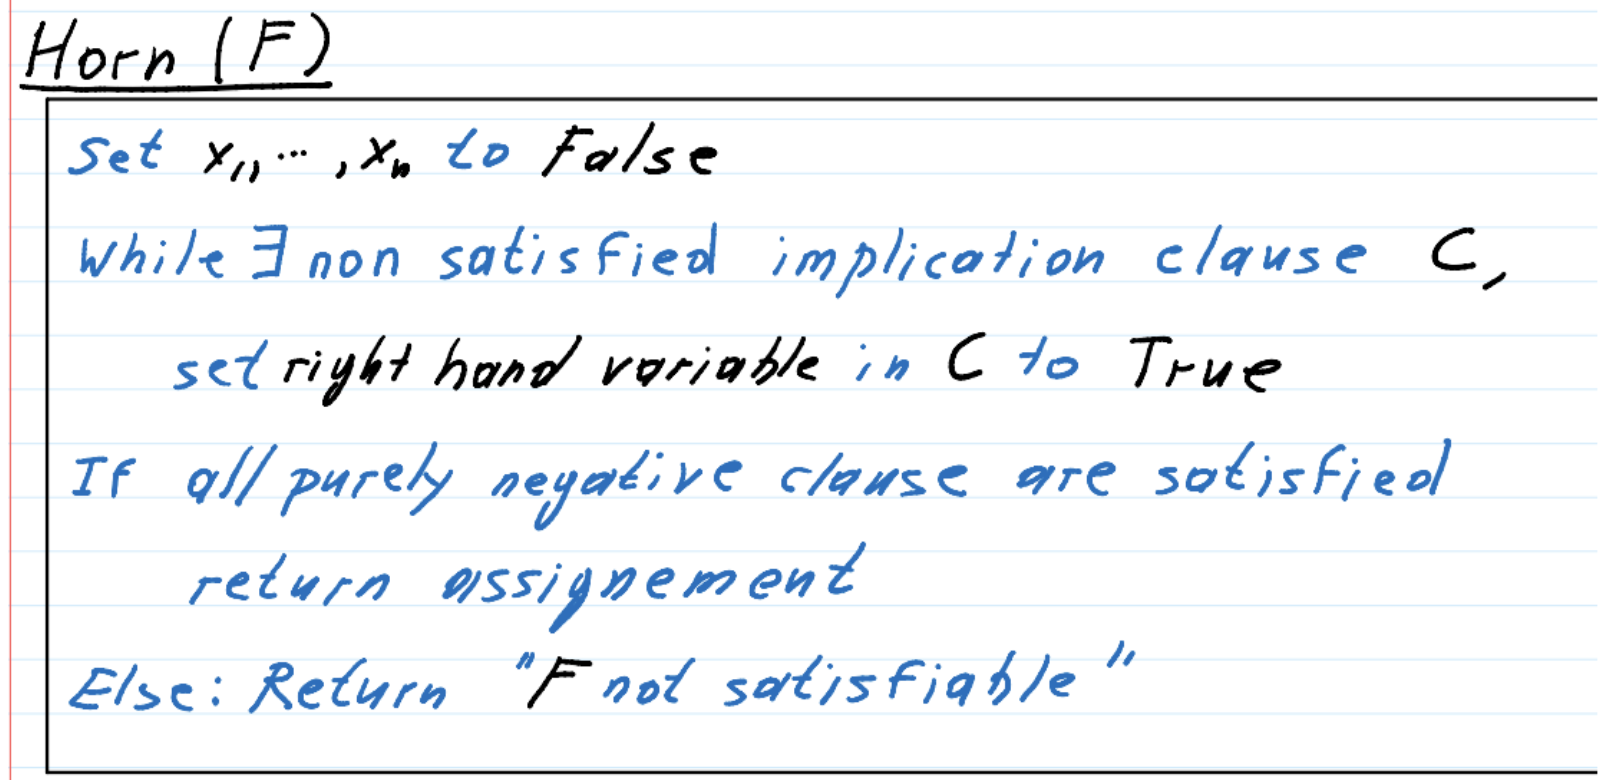 Horn (F)
Set x₁,⋯,xₙ to False
While ∃ non satisfied implication clause C,
set right hand variable in C to True
If all purely negative clause are satisfied
return assignement
Else: Return "F not satisfiable"